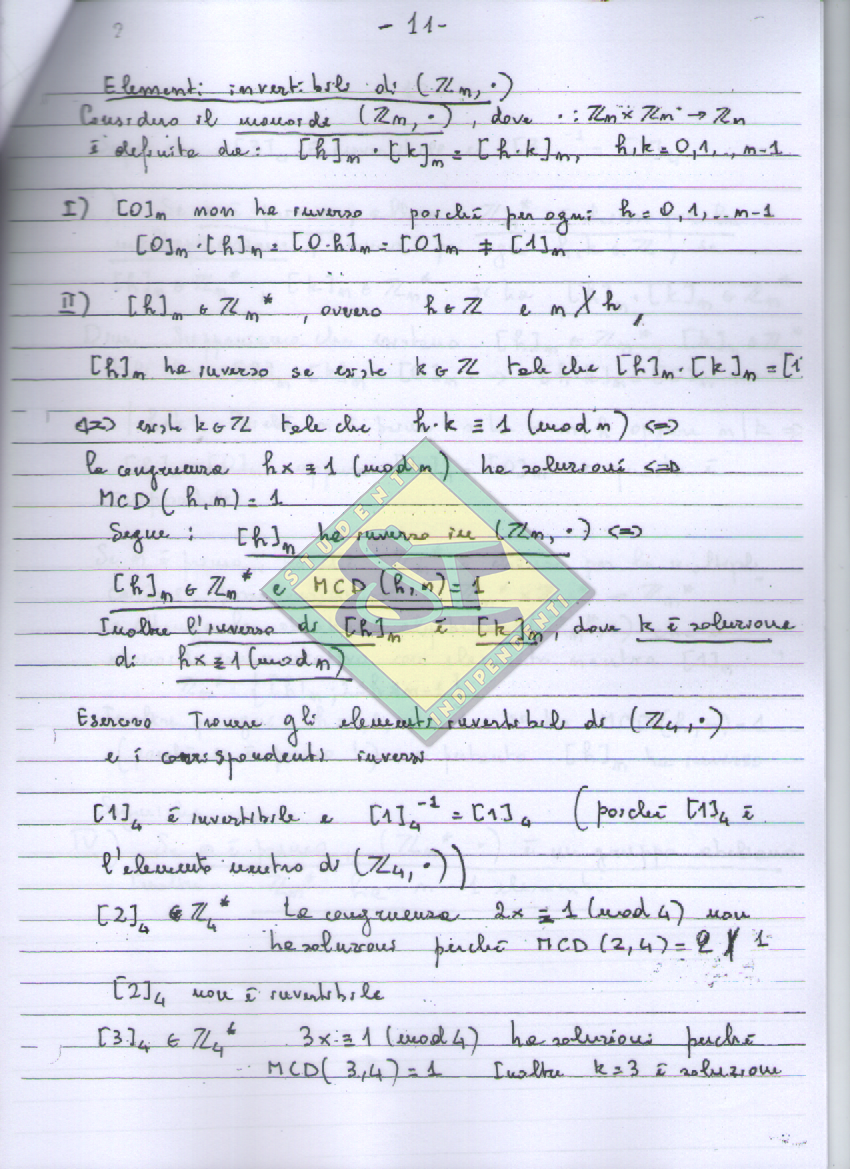 - 11 -
Elementi invertibili di (ℤn, ·)
Considero il monoide (ℤn, ·), dove · : ℤn × ℤn → ℤn
è definita da: [h]n · [k]n = [h·k]n, h,k = 0,1,.., n-1
I) [0]n non ha inverso poiché per ogni h = 0,1,.. n-1
[0]n · [h]n = [0·h]n = [0]n ≠ [1]n
II) [h]n ∈ ℤn*, ovvero h ∈ ℤ e n ∤ h,
[h]n ha inverso se esiste k ∈ ℤ tale che [h]n · [k]n = [1
<=> esiste k ∈ ℤ tale che h·k ≡ 1 (mod n) <=>
la congruenza hx ≡ 1 (mod n) ha soluzioni <=>
MCD (h, n) = 1
Segue : [h]n ha inverso in (ℤn, ·) <=>
[h]n ∈ ℤn* e MCD (h, n) = 1
Inoltre l'inverso di [h]n è [k]n, dove k è soluzione
di hx ≡ 1 (mod n)
Esercizio Trovare gli elementi invertibili di (ℤ4, ·)
e i corrispondenti inversi
[1]4 è invertibile e [1]4⁻¹ = [1]4 (poiché [1]4 è
l'elemento neutro di (ℤ4, ·))
[2]4 ∈ ℤ4* La congruenza 2x ≡ 1 (mod 4) non
ha soluzioni perché MCD (2,4) = 2 ∤ 1
[2]4 non è invertibile
[3]4 ∈ ℤ4* 3x ≡ 1 (mod 4) ha soluzioni perché
MCD( 3,4) = 1 Inoltre k=3 è soluzione
STUDENTI
INDIPENDENTI